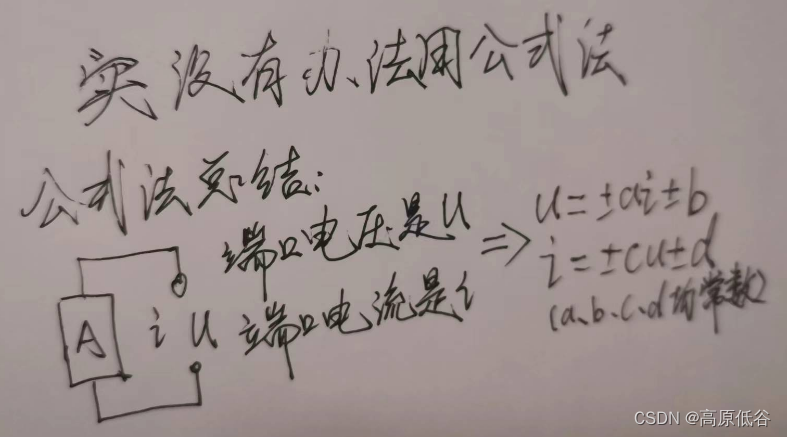 实没有办法用公式法
公式法总结:
端口电压是u
端口电流是i
A
i
u
=>
u=±ai±b
i=±cu±d
(a、b、c、d均常数)
CSDN @高原低谷